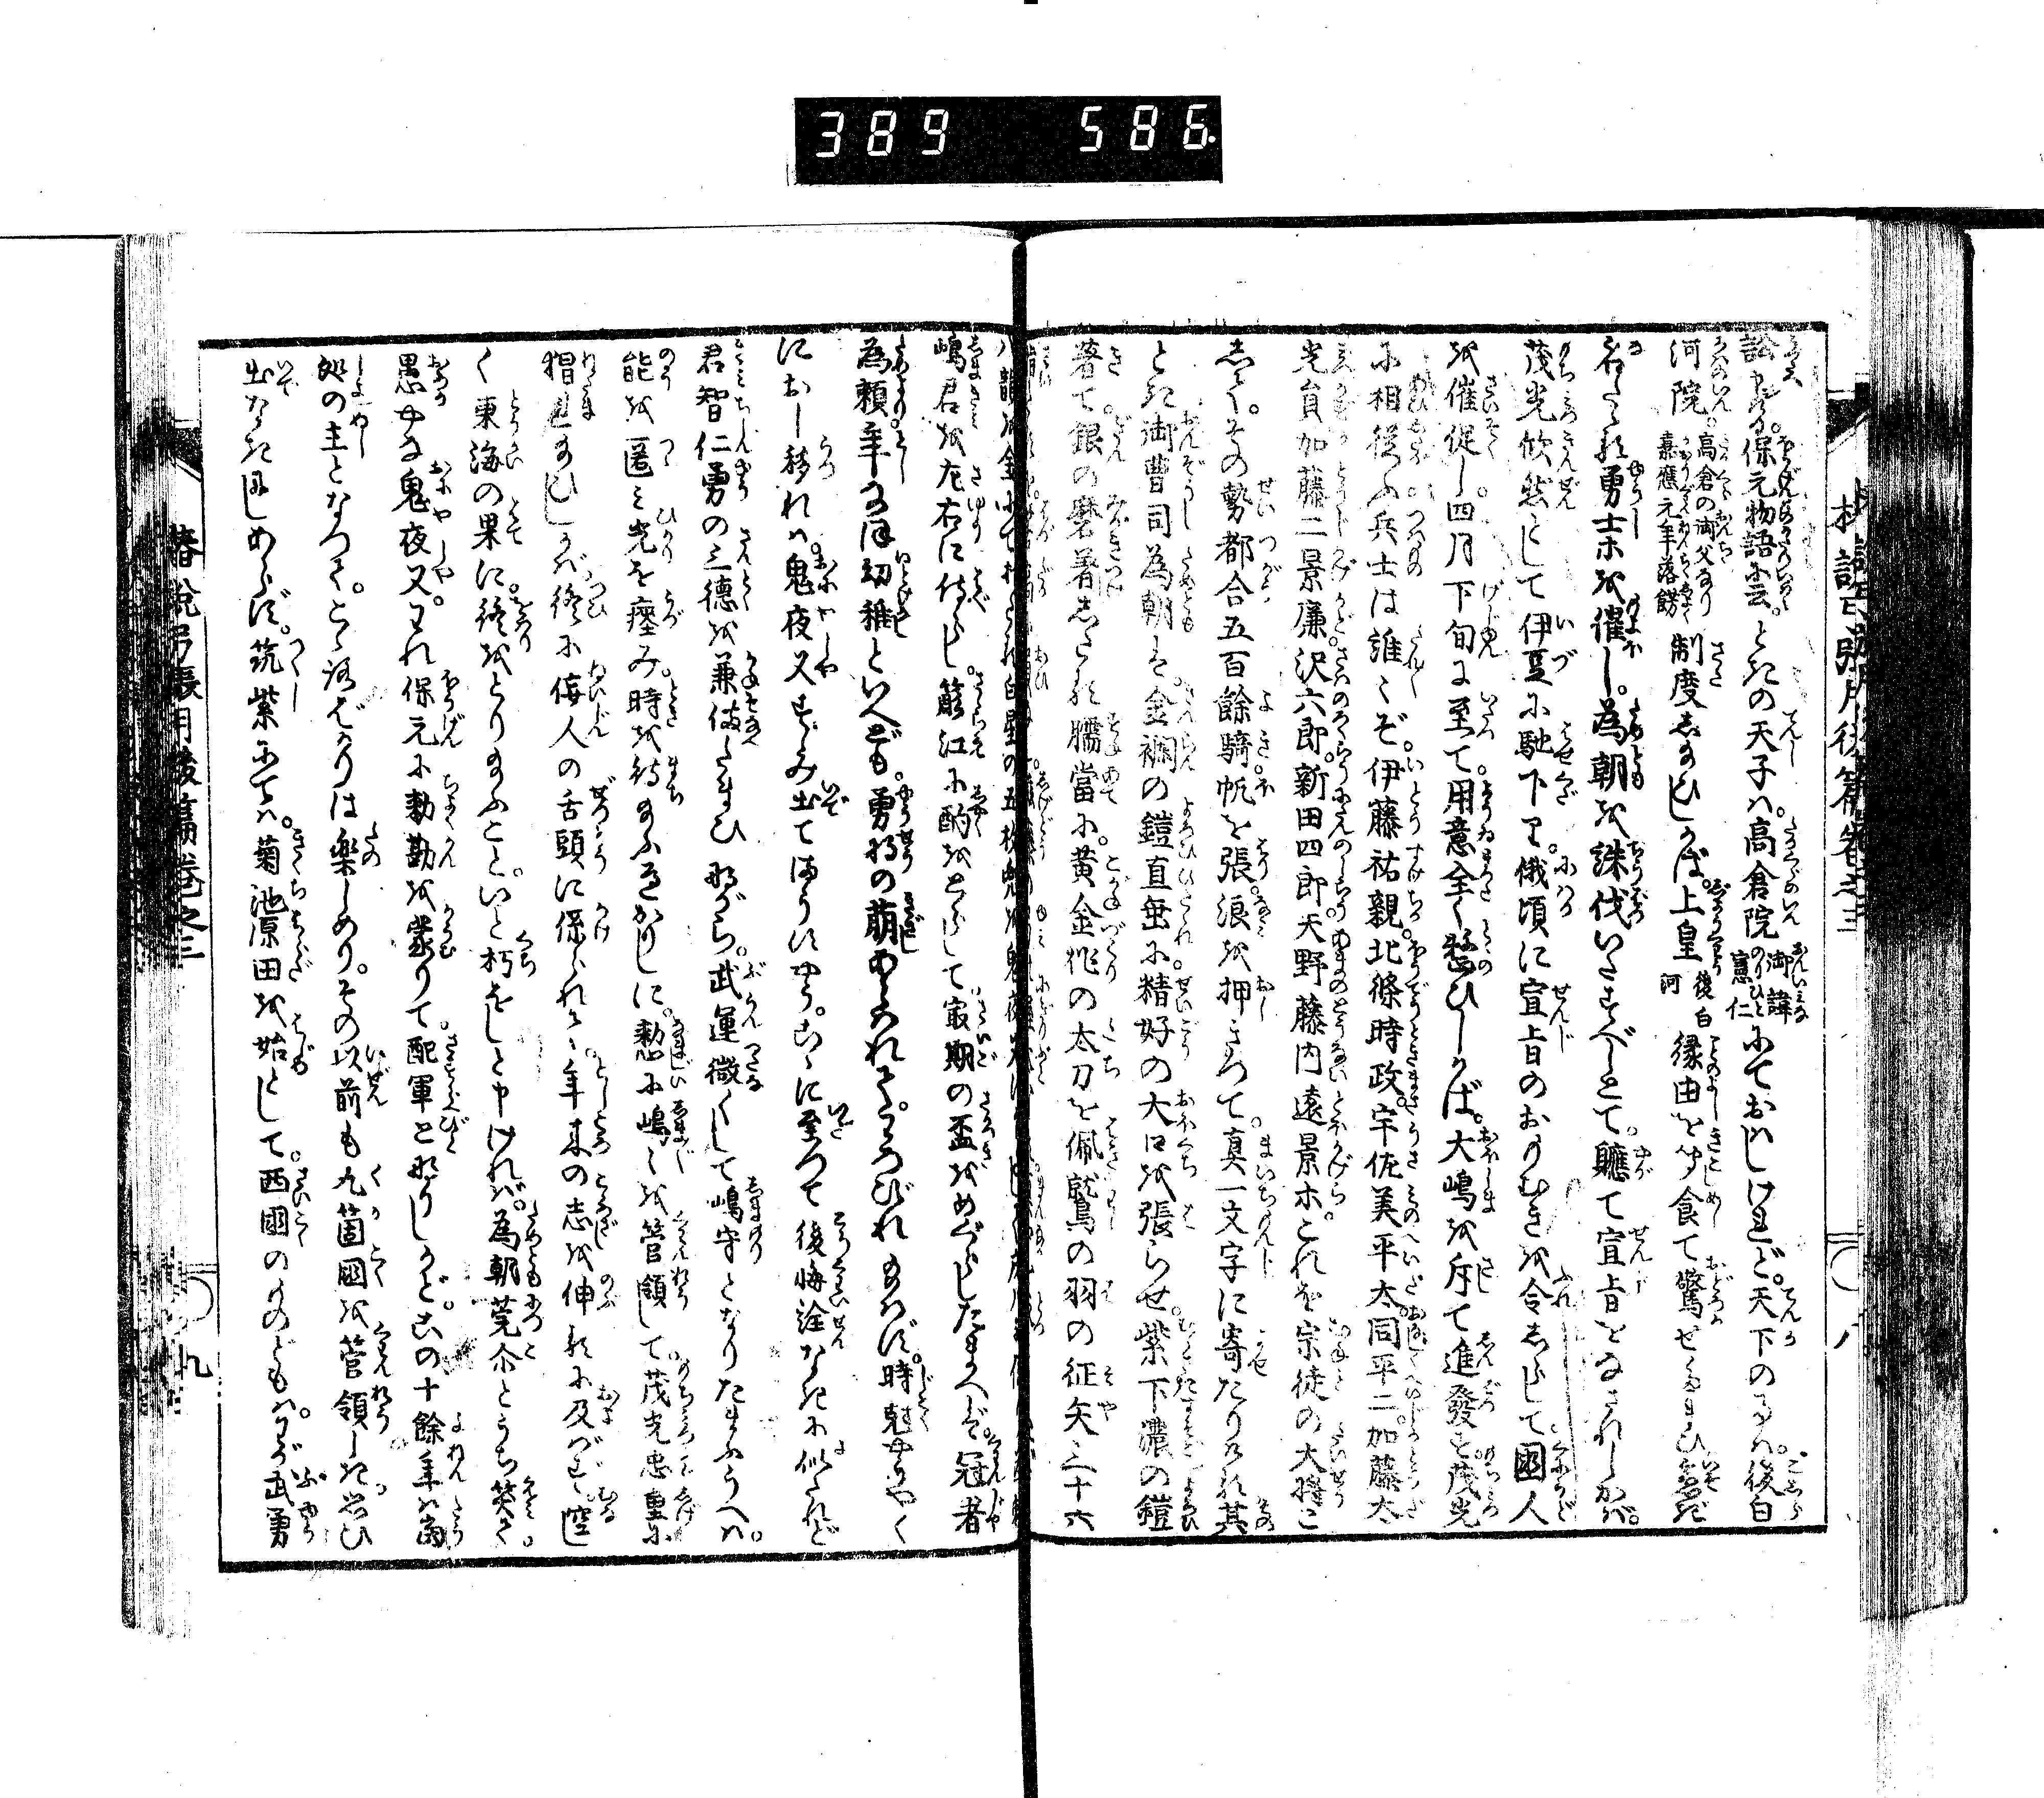 389 586.
訟申す。保元物語に云。ときの天子は。高倉院 御諱 憲仁 にておはしけれど。天下の事は。後白
河院。高倉の御父なり 嘉應元年落餝 制度し給ひしかば。上皇 後白河 縁由を聞食て驚せ給ひ。急ぎ
名たる勇士等を催し。為朝を誅伐いたすべしとて。軈て宣旨をなされしかば。
茂光欣然として伊豆に馳下り。俄頃に宣旨のおもむきを令しらして。國人
を催促し。四月下旬に至て。用意全く整ひしかば。大嶋を斥て進發と。茂光
に相従ふ兵士は誰々ぞ。伊藤祐親。北條時政。宇佐美平太。同平二。加藤太
光員。加藤二景廉。沢六郎。新田四郎。天野藤内遠景ホこれを宗徒の大将と
して。その勢都合五百餘騎。帆を張。浪を押きつて。真一文字に寄たりける。其
とき御曹司為朝は。金襴の鎧直垂に。精好の大口を張らせ。紫下濃の鎧
著て。銀の磨著したる臑當に。黄金作の太刀を佩。鷲の羽の征矢三十六
嶋君を左右に侍らし。簓江に酌をとらして。最期の盃をめぐらしたまへば。冠者
為頼年はなほ幼稚といへども。勇将の萌あらはれて。わろびれ給はず。時尅やうやく
におし移れば。鬼夜叉すゝみ出てまうすやう。こゝに至つて後悔詮なきに似たれど
君智仁勇の三徳を兼備したまひながら。武運微くして嶋守となりたまふうへは。
能を匿み光を瘞み。時を待給ふべかりしに。憖に嶋々を管領して。茂光忠重に
猜れ給ひしかば。終に侫人の舌頭に係られて。年来の志を伸るに及ばず。空し
く東海の果に。終をとり給ふこと。いと朽をしと申ければ。為朝莞尓とうち笑て。
愚也な鬼夜叉。われ保元に勅勘を蒙りて。配軍となりしかど。この十餘年は當
処の主となつて。こゝろばかりは楽しめり。その以前も九箇國を管領しき。思ひ
出なきにしもあらず。筑紫にては。菊池原田を始として。西國のものどもは。わが武勇
椿説弓張月後篇巻之三
八
椿説弓張月後篇巻之三
九